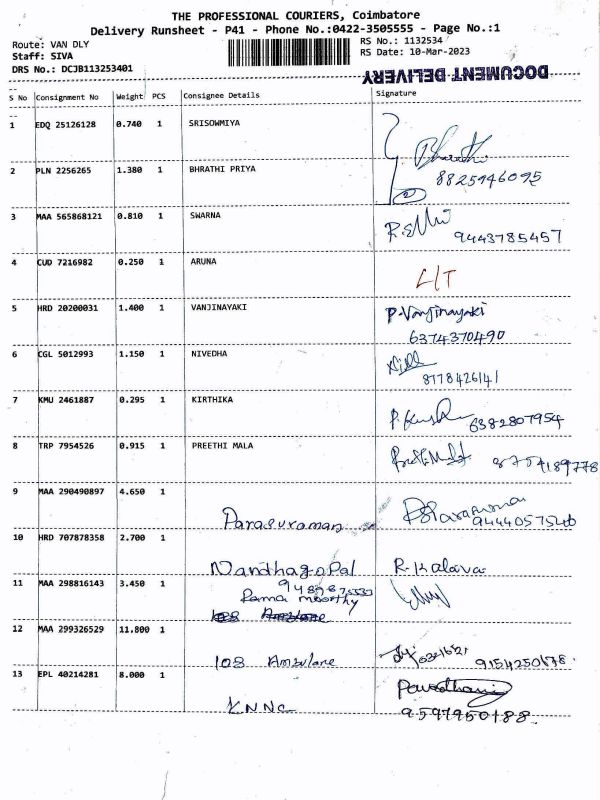 THE PROFESSIONAL COURIERS, Coimbatore
Delivery Runsheet - P41 - Phone No.:0422-3505555 - Page No.:1
Route: VAN DLY
RS No.: 1132534
Staff: SIVA
RS Date: 10-Mar-2023
DRS No.: DCJB113253401
DOCUMENT DELIVERY
S No Consignment No Weight PCS Consignee Details Signature
1 EDQ 25126128 0.740 1 SRISOWMIYA
Bharathi
8825946095
2 PLN 2256265 1.380 1 BHRATHI PRIYA
3 MAA 565868121 0.810 1 SWARNA
9443785457
4 CUD 7216982 0.250 1 ARUNA
L/T
5 HRD 20200031 1.400 1 VANJINAYAKI P.Vanjinayaki
6374370490
6 CGL 5012993 1.150 1 NIVEDHA
8778426141
7 KMU 2461887 0.295 1 KIRTHIKA
6382807954
8 TRP 7954526 0.915 1 PREETHI MALA
8754189778
9 MAA 290490897 4.650 1
Parasuraman
9444057546
10 HRD 707878358 2.700 1
Nandhagopal R.Kalava
11 MAA 298816143 3.450 1
Rama moorthy
12 MAA 299326529 11.800 1
108 Ambulane
9154250678.
13 EPL 40214281 8.000 1
KNNC
9597950188.